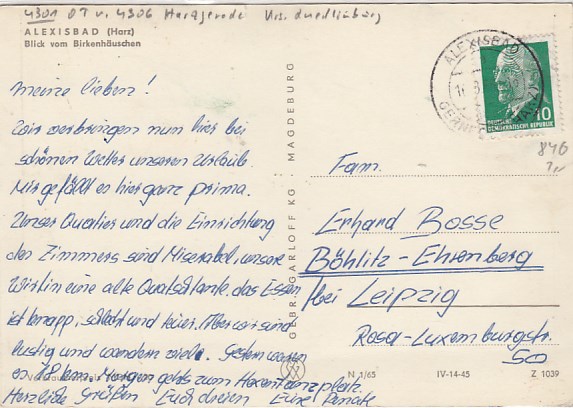 4301 OT v. 4306 Harzgerode Krs. Quedlinburg
ALEXISBAD (Harz)
Blick vom Birkenhäuschen
Meine lieben!
Wir verbringen nun hier bei
schönen Wetter unseren Urlaub.
Mir gefällt es hier ganz prima.
Unser Quatier und die Einrichtung
des Zimmers sind Miserabel, unsere
Wirtin eine alte Quatschtante, das Essen
ist knapp, schlecht und teuer. Aber wir sind
lustig und wandern viel. Gestern waren
es 18 km. Morgen gehts zum Hexentanzplatz.
Herzliche Grüße Euch dreien Eure Renate
GEBR. GARLOFF KG · MAGDEBURG
ALEXISBAD
DEUTSCHE
DEMOKRATISCHE REPUBLIK
10
846
Fam.
Erhard Bosse
Böhlitz-Ehrenberg
bei Leipzig
Rosa-Luxemburgstr.
50
N 1/65 IV-14-45 Z 1039